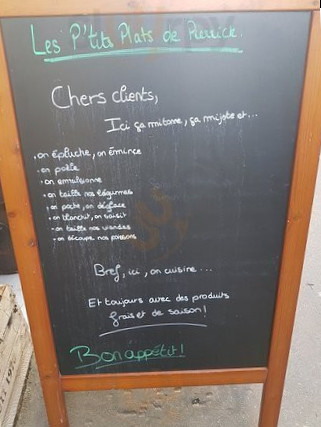 Les P'tits Plats de Pierrick.
Chers clients,
Ici ça mitonne, ça mijote et...
• on épluche, on émince
• on poêle
• on emulsionne
• on taille nos légumes
• on poche, on déglace
• on blanchit, on saisit
• on taille nos viandes
• on découpe nos poissons
Bref, ici, on cuisine...
Et toujours avec des produits
frais et de saison !
Bon appétit !